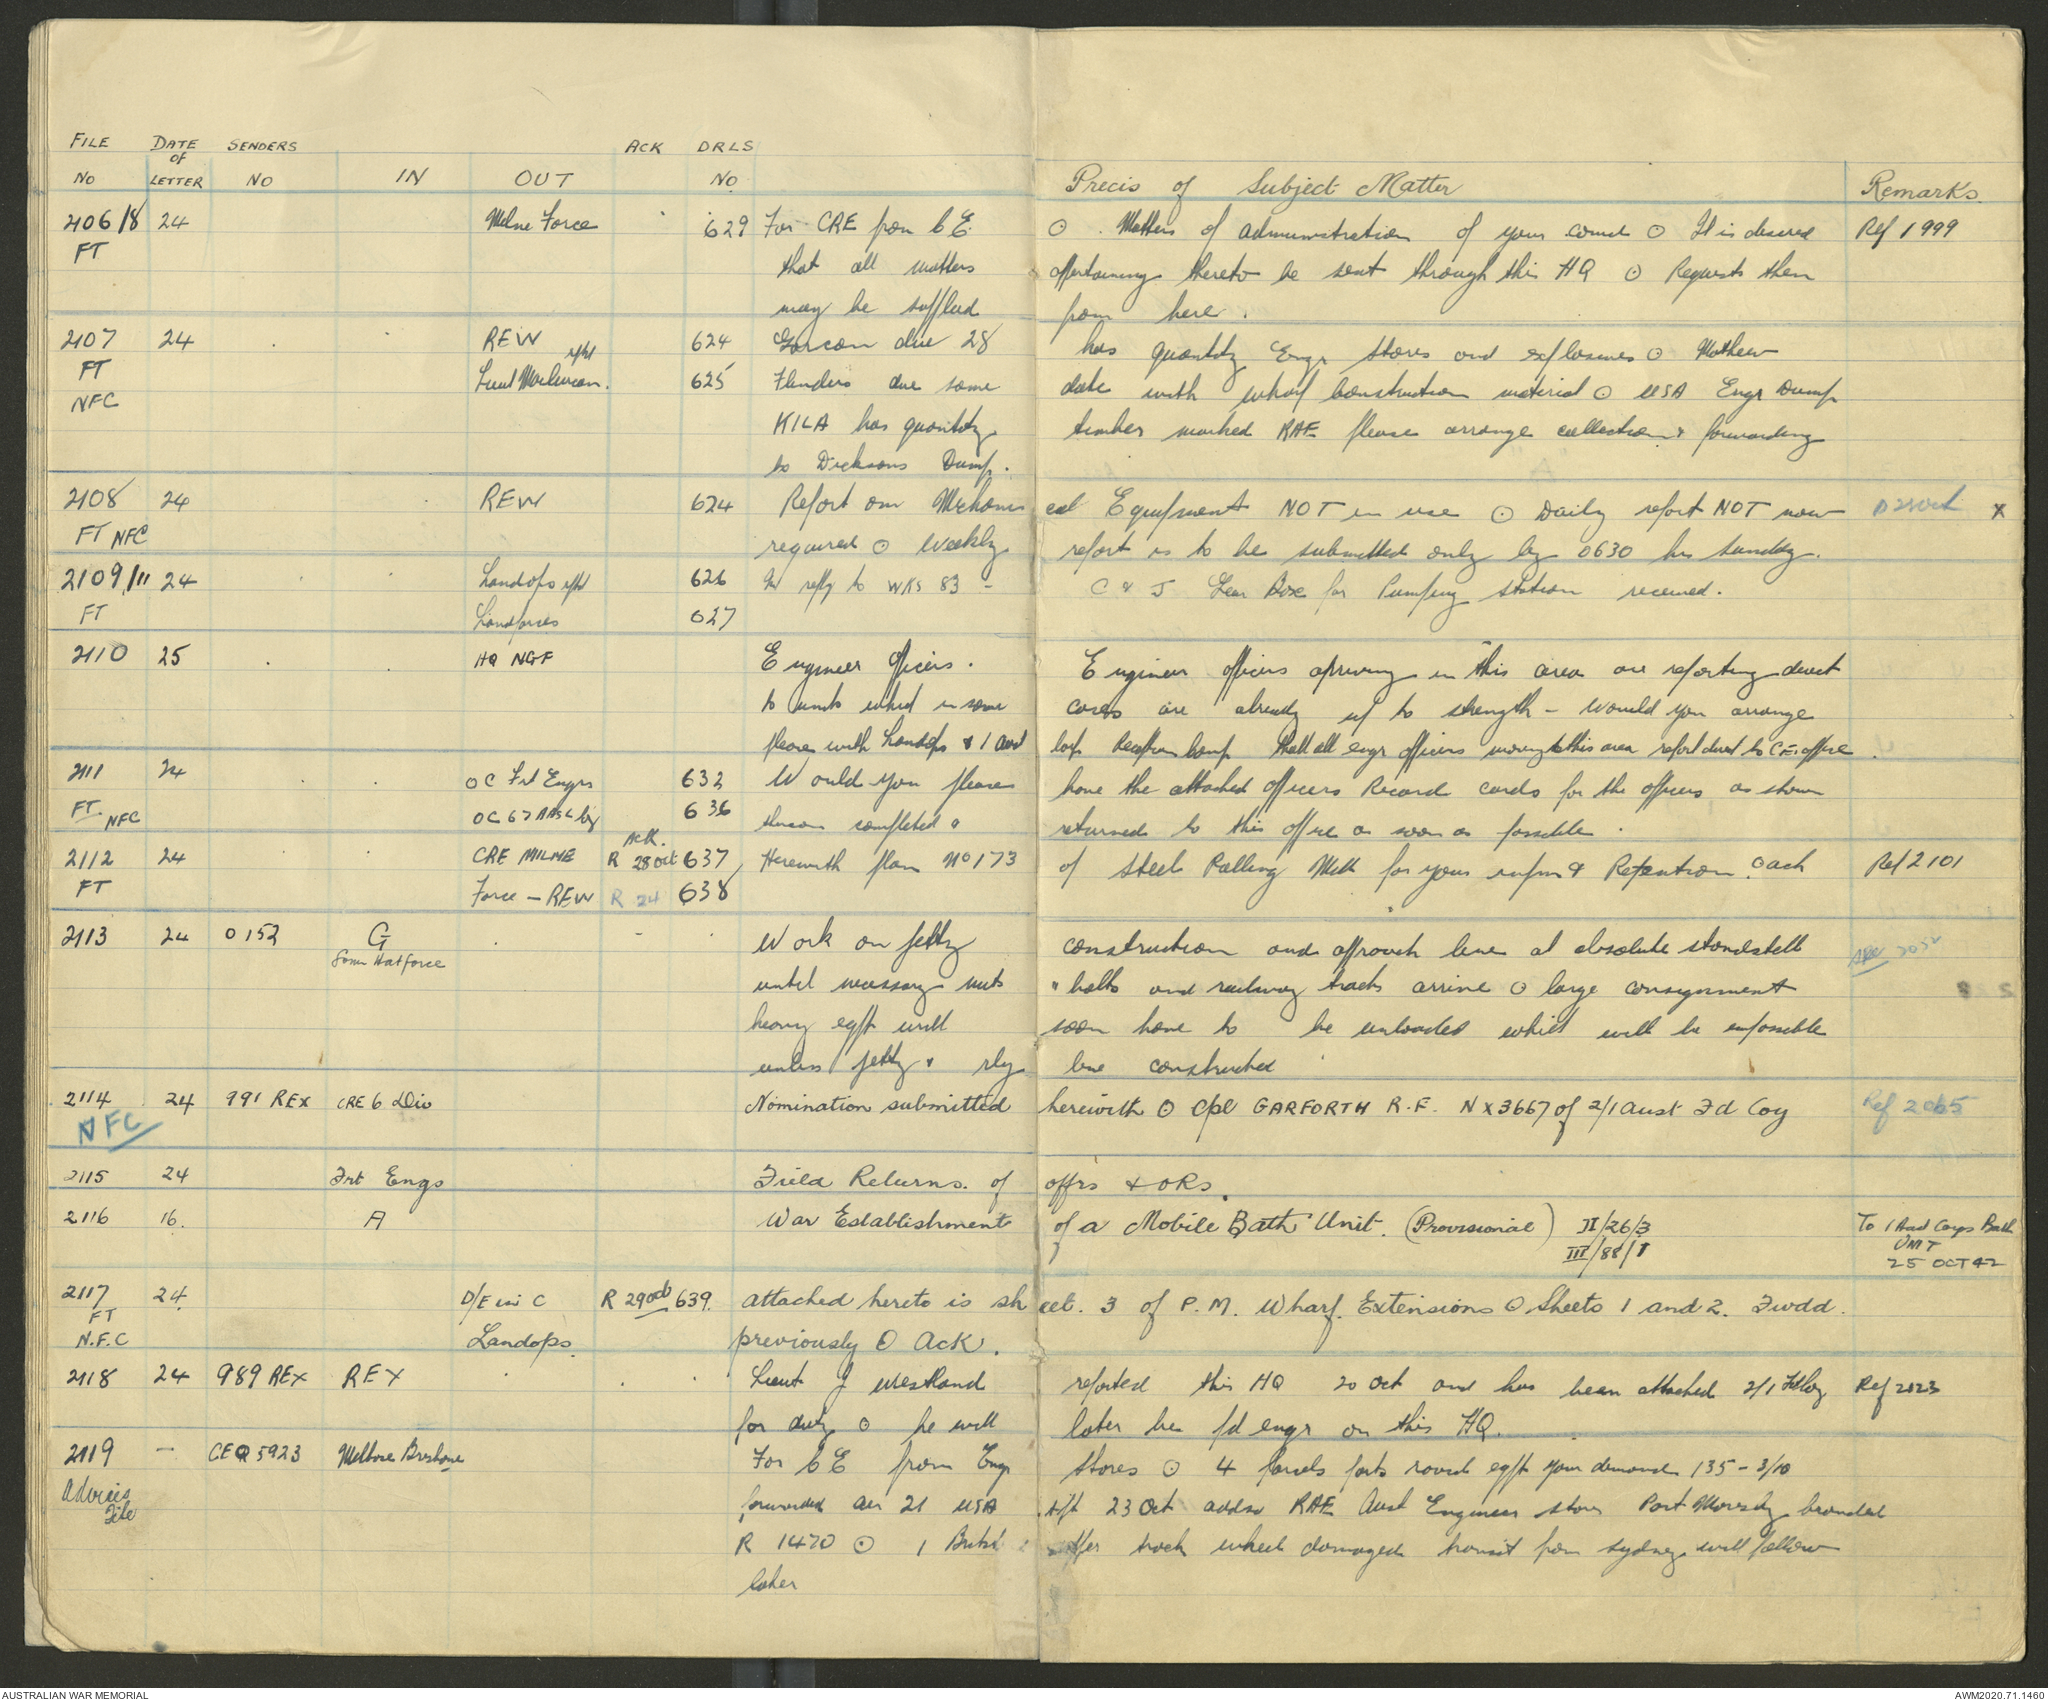 FILE DATE SENDERS ACK DRLS
OF
NO LETTER NO IN OUT NO Precis of Subject Matter Remarks
2106/8 24 Milne Force 629 For CRE from C E. ⊙ Matters of administration of your comd ⊙ It is desired Ref 1999
FT that all matters appertaining thereto be sent through this HQ ⊙ Requests then
may be supplied from here.
2107 24 REW 624 Gorcon due 28 has quantity Engr stores and explosives ⊙ Mathew
FT Lieut 625 Flinders due same date with wharf construction material ⊙ USA Engr Dump
NFC KILA has quantity timber marked RAE please arrange collection & forwarding
to Dicksons Dump.
2108 24 REW 624 Report on Mechanical Equipment NOT in use ⊙ Daily report NOT now D 28 Oct X
FT NFC required ⊙ Weekly report is to be submitted only by 0630 hrs Sunday.
2109/11 24 Landops rptd 626 In reply to WKS 83 - C & J Gear Box for Pumping station received.
FT Landforces 627
2110 25 HQ NGF Engineer Officers. Engineer officers arriving in this area are reporting direct
to units which in some cases are already up to strength - Would you arrange
please with Landops & 1 Aust Corps Reception Camp that all engr officers moving to this area report direct to CE's office.
2111 24 OC Frt Engrs 632 Would you please have the attached Officers Record cards for the officers as shown
FT. NFC OC 67 A A S/L Bty 636 thereon completed & returned to this office as soon as possible.
ACK.
2112 24 CRE MILNE R 28 Oct 637 Herewith plan No 173 of Steel Railing for your infm & Retention. ⊙ ack Ref 2101
FT Force - REW R 24 638
2113 24 0152 G Work on jetty construction and approach line at absolute standstill 2052
from Hatforce until necessary nuts " bolts and railway tracks arrive ⊙ large consignment
heavy eqpt will soon have to be unloaded which will be impossible
unless jetty & rly line constructed
2114 24 991 REX CRE 6 Div Nomination submitted herewith ⊙ Cpl GARFORTH R.F. NX3667 of 2/1 Aust Fd Coy Ref 2065
NFC
2115 24 Frt Engs Field Returns. of offrs & ORs.
2116 16. A War Establishment of a Mobile Bath Unit. (Provisional) II/26/3 To 1 Aust Corps Bath
III/88/1 UNIT
25 OCT 42
2117 24 D/E in C R 29 Oct 639. attached hereto is sheet. 3 of P.M. Wharf. Extensions ⊙ Sheets 1 and 2. Fwdd.
FT
N.F.C Landops. previously ⊙ Ack.
2118 24 989 REX REX Lieut J Westland reported this HQ 20 Oct and has been attached 2/1 Fd Coy Ref 2023
for duty ⊙ he will later be fd engr on this HQ.
2119 - CEQ 5923 Melbase Brisbane For C E from Engr Stores ⊙ 4 parcels parts road eqpt your demand 135 - 3/10
Advices forwarded air 21 USA 23 Oct addsd RAE Aust Engineer store Port Moresby branded
File R 1470 ⊙ 1 track wheel damaged transit from Sydney will follow
later
AUSTRALIAN WAR MEMORIAL AWM2020.71.1460